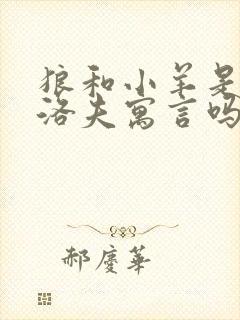 狼和小羊是
洛夫寓言吗
郝庆华